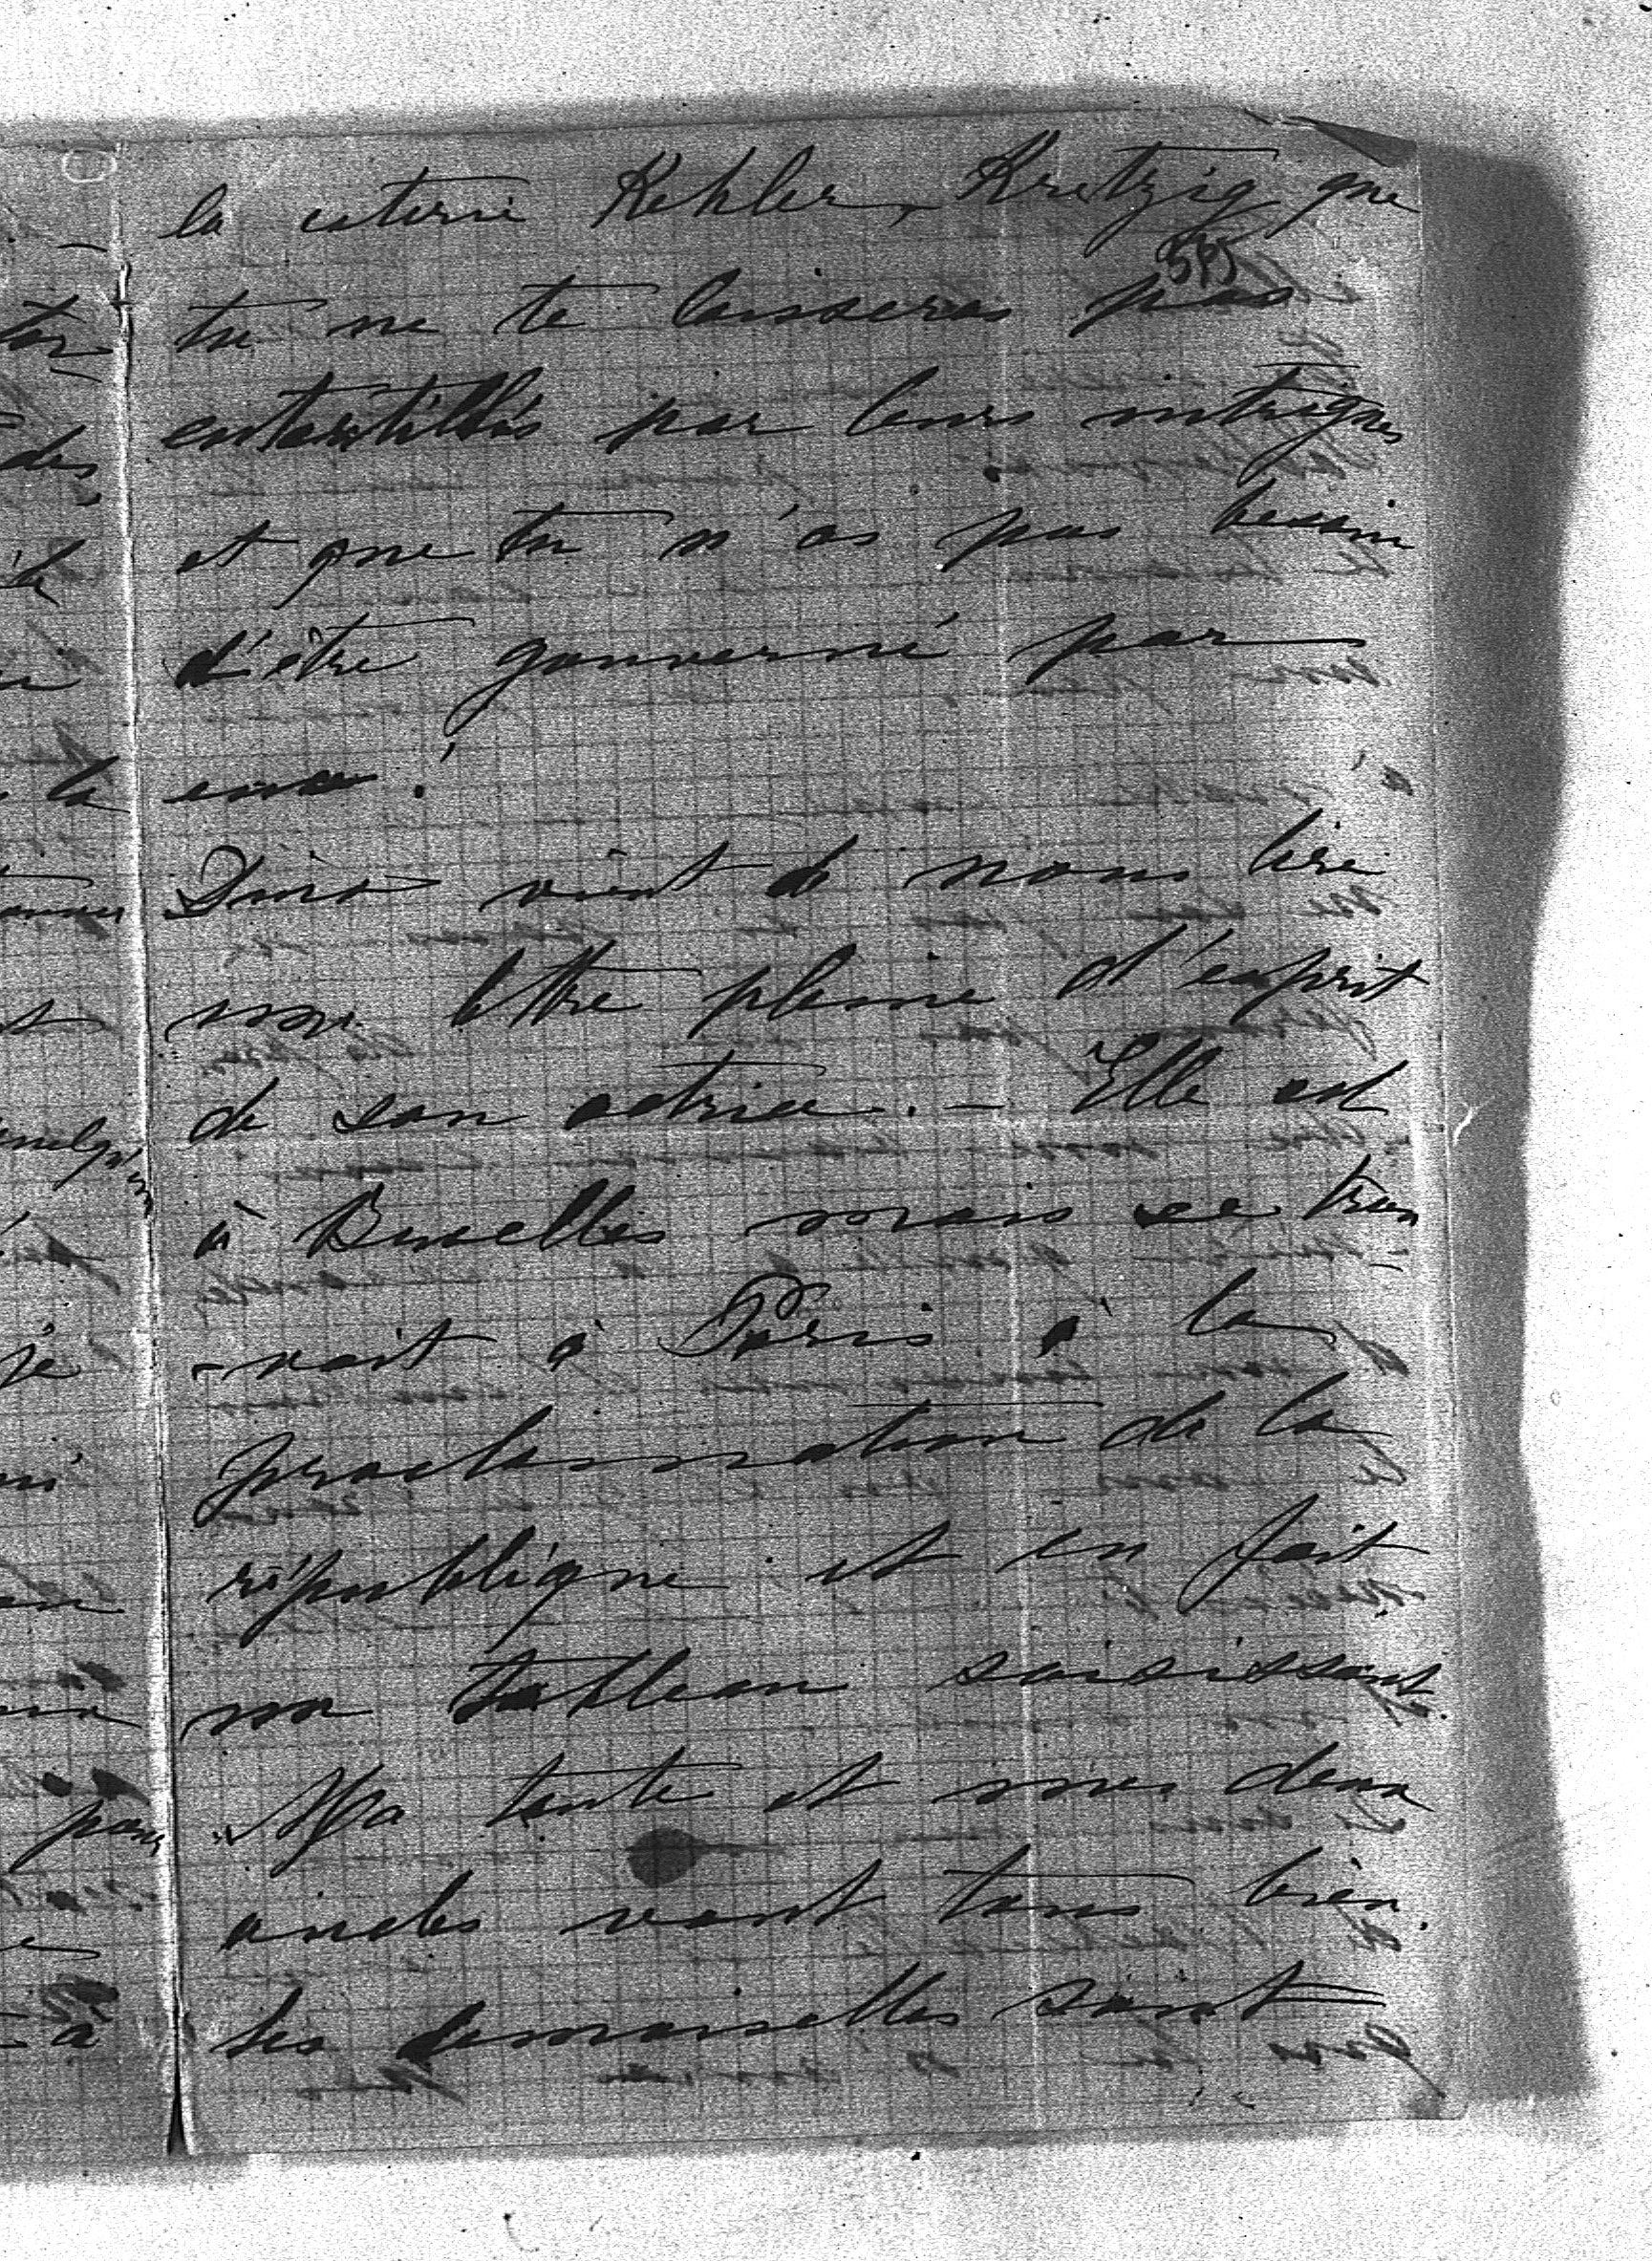 la coterie Kehler, Kretzig que
595
tu ne te laisseras pas
entortillés par leurs intrigues
et que tu n'as pas besoin
d'être gouverné par
eux!
vient de nous lire
une lettre pleine d'esprit
de son actrice. — Elle est
à Bruxelles mais se trou
-vait à Paris à la
proclamation de la
république et en fait
un tableau saisissant.
Ma tante et mes deux
oncles vont tous bien.
les demoiselles sont